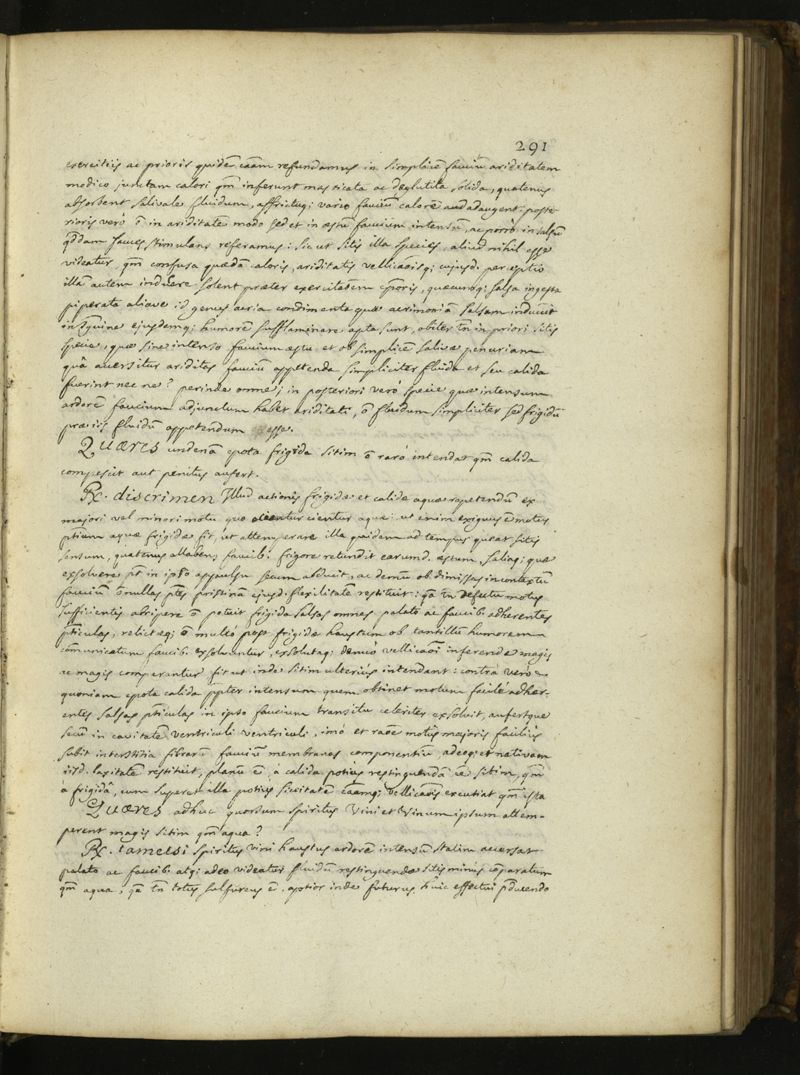 291
exercitiis ac prioris quidē caām refundamus in simplicē fauciū ariditatem
modico junctam calori qm̄ inferunt masticata ac deglutita solida, quatenus
absorbent salivale fluidum, affrictuq; vario fauciū calorē adaugent: poste-
rioris verò ō in ariditatē modo sed et in æstū faucium intensū, ac porrò in salsū
qddam fauces stimulans referamus: sicut sitis illa species, aliud nihil esse
videatur, qm̄ confusa quædā caloris, ariditatis vellicaōisq; cujusd. perceptio
illā autem inducere solent præter exercitaōem cporis, quæcunq; salsa ingesta
piperata aliave id genus acria condimenta quæ acrimoniā salsam inducūt
in sanguine ejusdemq; humorē sufflaminare apta sunt, obiter tn̄ in priori sitis
specie, quæ sine intenso faucium æstu et ob simplicē salivæ penuriam
quâ aversitur ariditas fauciū appetenda simpliciter fluida et seu calida
fuerint nec ne? perinde omne; in posteriori verò specie quæ intensum
ardorē faucium adjunctum habet ariditati, ō fluidum simpliciter sed frigidū
præ iis fluidū appetendum esse.
Quæres undenā epota frigida sitim ō rarò intendat qm̄ calida
compescit aut penitus aufert.
R. discrimen Illud actionis frigidæ et calidæ aquæ repetendū ex
majori vel minori motu quo cientur aquæ: ut enim exiguus ē motus
ptium aquæ frigidæ fit, ut attemperare illa quidem ad tempus queat sitis
sensum, quatenus allabens faucib. frigore retundit earumd. æstum, saliaq; quæ
exsolvere pt in ipso appulsu secum abducit, ac demū ob dimissas in contextū
fauciū nullas ptes pristinā ejusd. flexilitatē restituit: qa tn̄ defectu motus
sufficientis abripere ō potuit frigida salsas omnes palato ac faucib. adhærentes
pticulas, relictæq; ō multò post frigidæ haustum ob tantillū humorem
cōmunicatum faucib. exsolvuntur, exsolutæq; denuò vellicaōi inferendæ magis
ac magis comparantur fit ut inde sitim ulteriùs intendant: contrà verò
quoniam epota calida ppter intensum quem obtinet motum facilè adhær-
entes salsas pticulas in ipso faucium transitu celeriter exsolvit, aufertque
secū in cavitatē ventriculi, imò et raōe motûs majoris faciliùs
subit interstitia fibrarū fauciū membranas componentiū adeoq; et nativam
iisd. laxitatē restituit, planū ē à calida potiùs restinguendā ēe sitim, qm̄
à frigidâ, cum superet illa potiùs siccitatē caāmq; vellicaōis excutiat qm̄ ista
Quæres adhuc quorsum spiritus vini et vinum ipsum attem-
perent magis sitim qm̄ aqua?
R. tametsi spiritus vini haustus ardorē intensū statim accersat
palato ac faucib. atq; adeo videatur fluidū restinguendæ sitis minus cōparatum
qm̄ aqua, qa tn̄ totus sulfureus ē, aptior inde futurus huic effectui pducendo